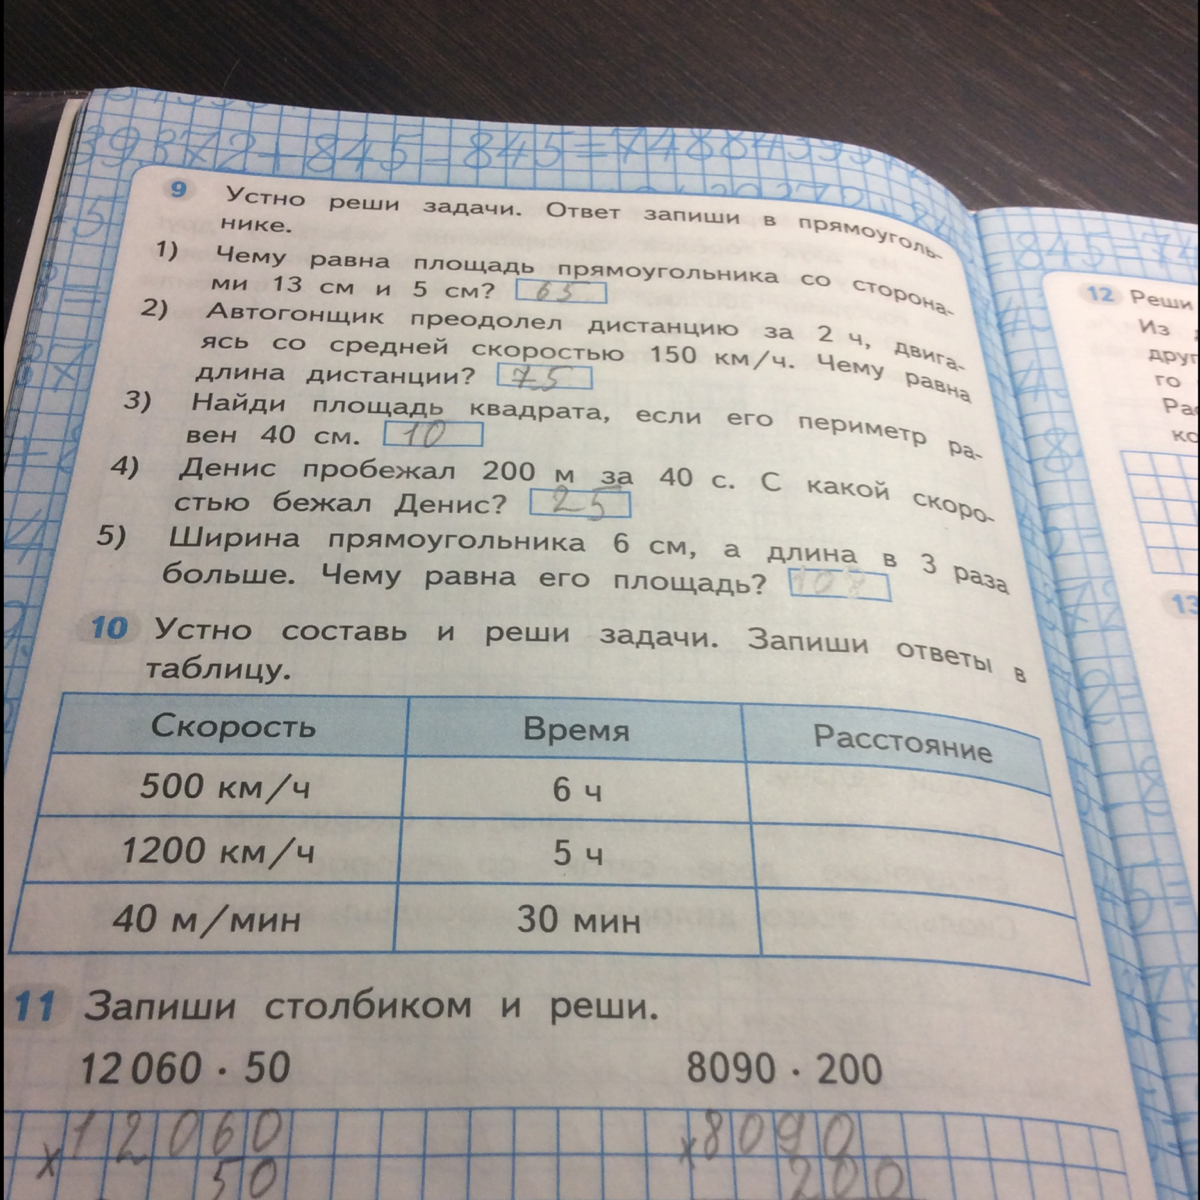 39372+845-845=74884399
845=74
9 Устно реши задачи. Ответ запиши в прямоуголь-
нике.
1) Чему равна площадь прямоугольника со сторона-
ми 13 см и 5 см? 65
2) Автогонщик преодолел дистанцию за 2 ч, двига-
ясь со средней скоростью 150 км/ч. Чему равна
длина дистанции? 75
3) Найди площадь квадрата, если его периметр ра-
вен 40 см. 10
4) Денис пробежал 200 м за 40 с. С какой скоро-
стью бежал Денис? 25
5) Ширина прямоугольника 6 см, а длина в 3 раза
больше. Чему равна его площадь?
10 Устно составь и реши задачи. Запиши ответы в
таблицу.
Скорость Время Расстояние
500 км/ч 6 ч
1200 км/ч 5 ч
40 м/мин 30 мин
11 Запиши столбиком и реши.
12 060 · 50 8090 · 200
×12060 ×8090
50 200
12 Реши
Из
друг
го
Ра
ко
13